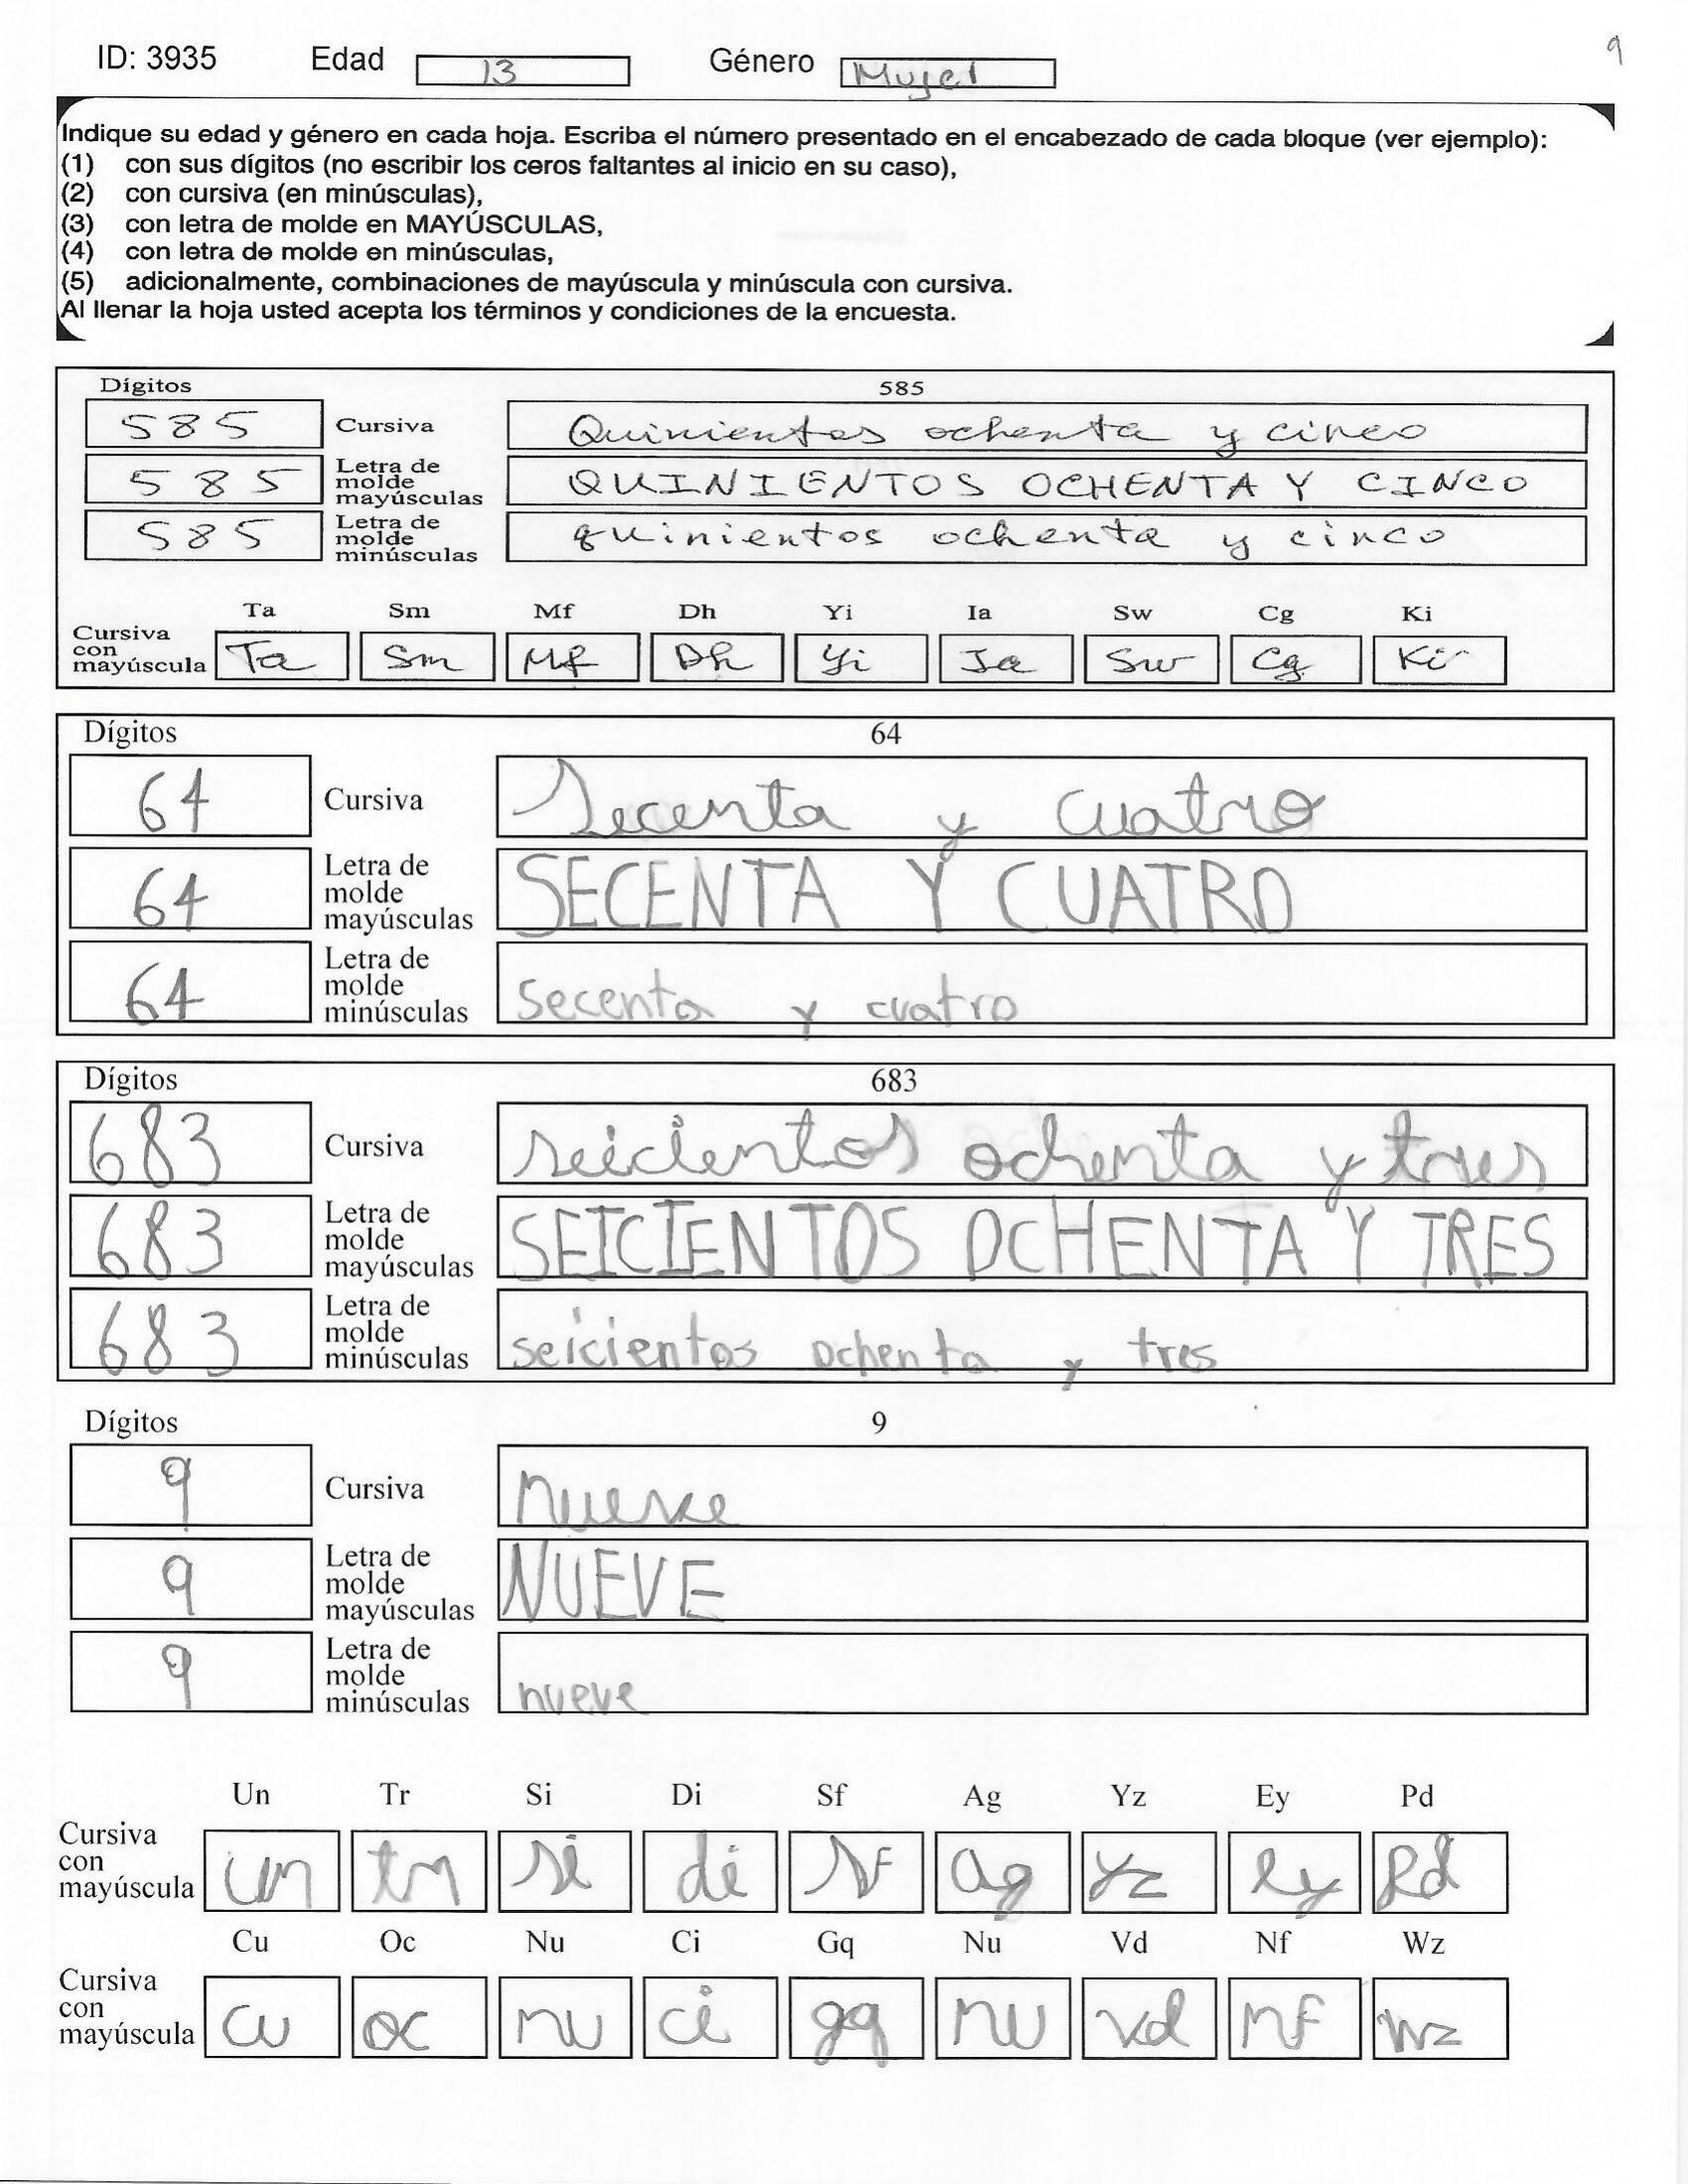 ID: 3935 Edad 13 Género Mujer 9
Indique su edad y género en cada hoja. Escriba el número presentado en el encabezado de cada bloque (ver ejemplo):
(1) con sus dígitos (no escribir los ceros faltantes al inicio en su caso),
(2) con cursiva (en minúsculas),
(3) con letra de molde en MAYÚSCULAS,
(4) con letra de molde en minúsculas,
(5) adicionalmente, combinaciones de mayúscula y minúscula con cursiva.
Al llenar la hoja usted acepta los términos y condiciones de la encuesta.
Dígitos 585
585 Cursiva Quinientos ochenta y cinco
585 Letra de molde mayúsculas QUINIENTOS OCHENTA Y CINCO
585 Letra de molde minúsculas quinientos ochenta y cinco
Ta Sm Mf Dh Yi Ia Sw Cg Ki
Cursiva con mayúscula Ta Sm Mf Dh Yi Ia Sw Cg Ki
Dígitos 64
64 Cursiva Secenta y cuatro
64 Letra de molde mayúsculas SECENTA Y CUATRO
64 Letra de molde minúsculas secenta y cuatro
Dígitos 683
683 Cursiva seicientos ochenta y tres
683 Letra de molde mayúsculas SEICIENTOS OCHENTA Y TRES
683 Letra de molde minúsculas seicientos ochenta y tres
Dígitos 9
9 Cursiva nueve
9 Letra de molde mayúsculas NUEVE
9 Letra de molde minúsculas nueve
Un Tr Si Di Sf Ag Yz Ey Pd
Cursiva con mayúscula un tr si di sf ag yz ey Pd
Cu Oc Nu Ci Gq Nu Vd Nf Wz
Cursiva con mayúscula cu oc nu ci gq nu vd nf wz